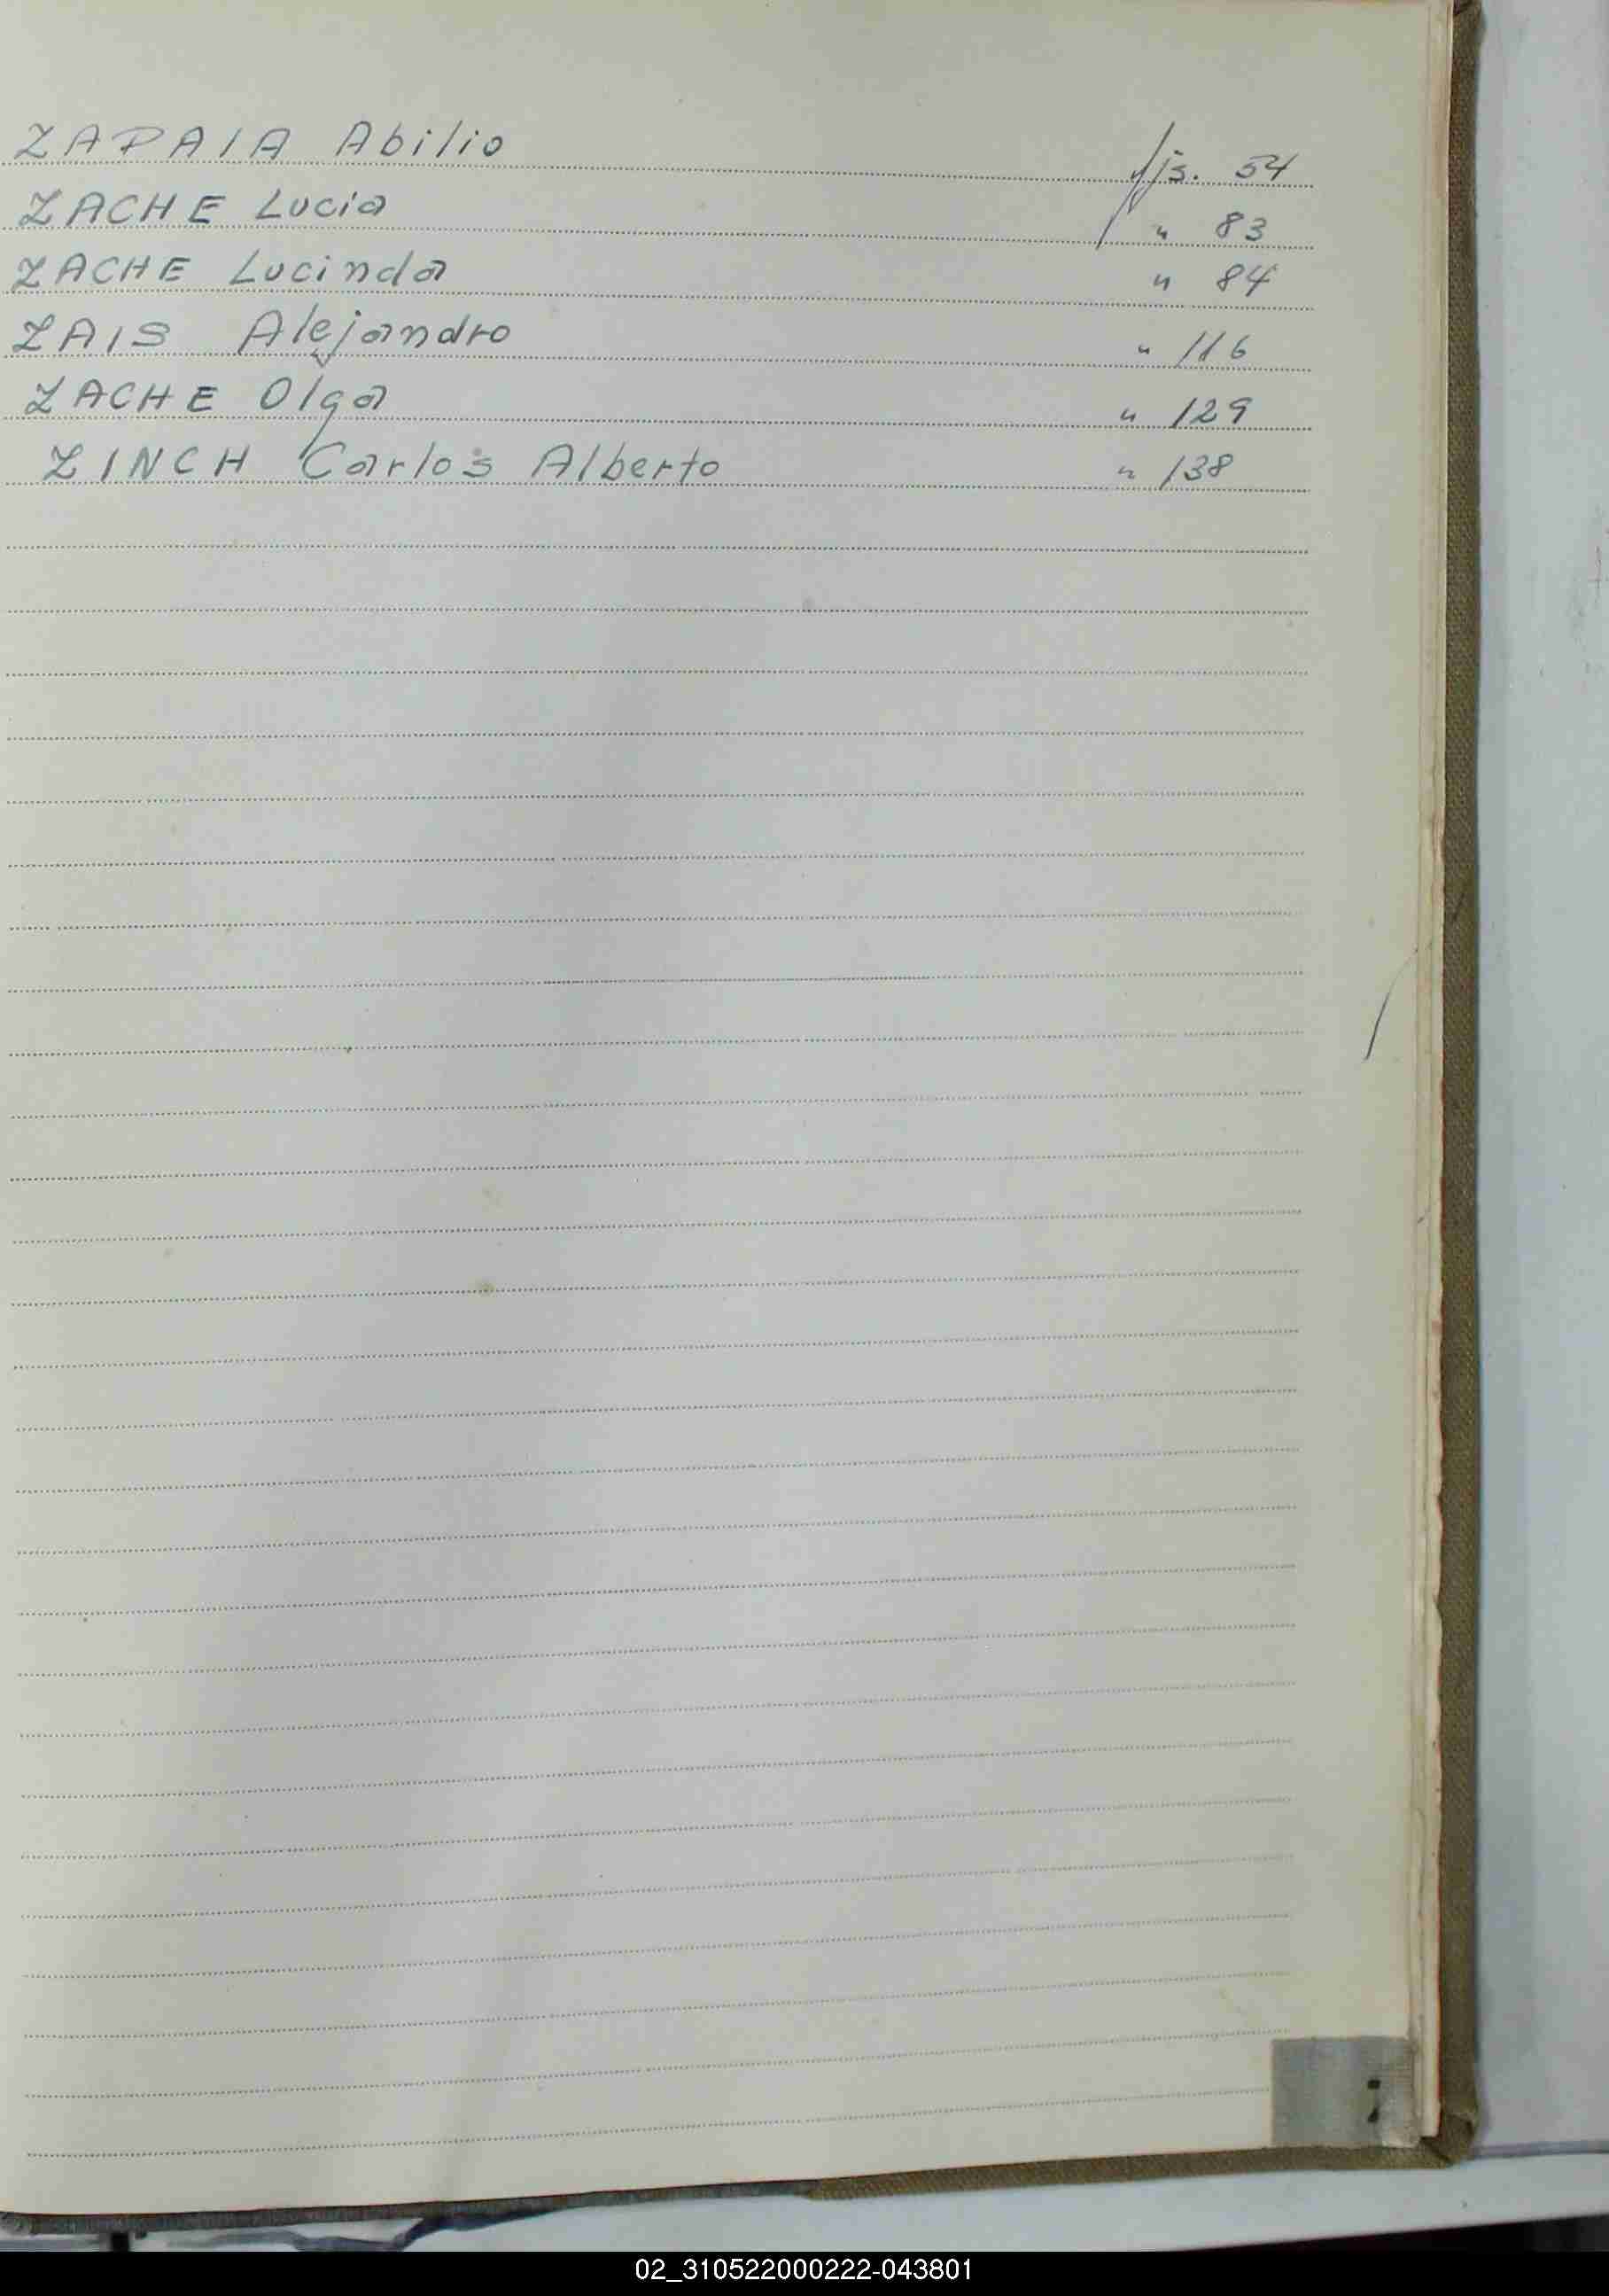 ZAPAIA Abilio fjs. 54
ZACHE Lucia " 83
ZACHE Lucinda " 84
ZAIS Alejandro " 116
ZACHE Olga " 129
ZINCH Carlos Alberto " 138
02_310522000222-043801